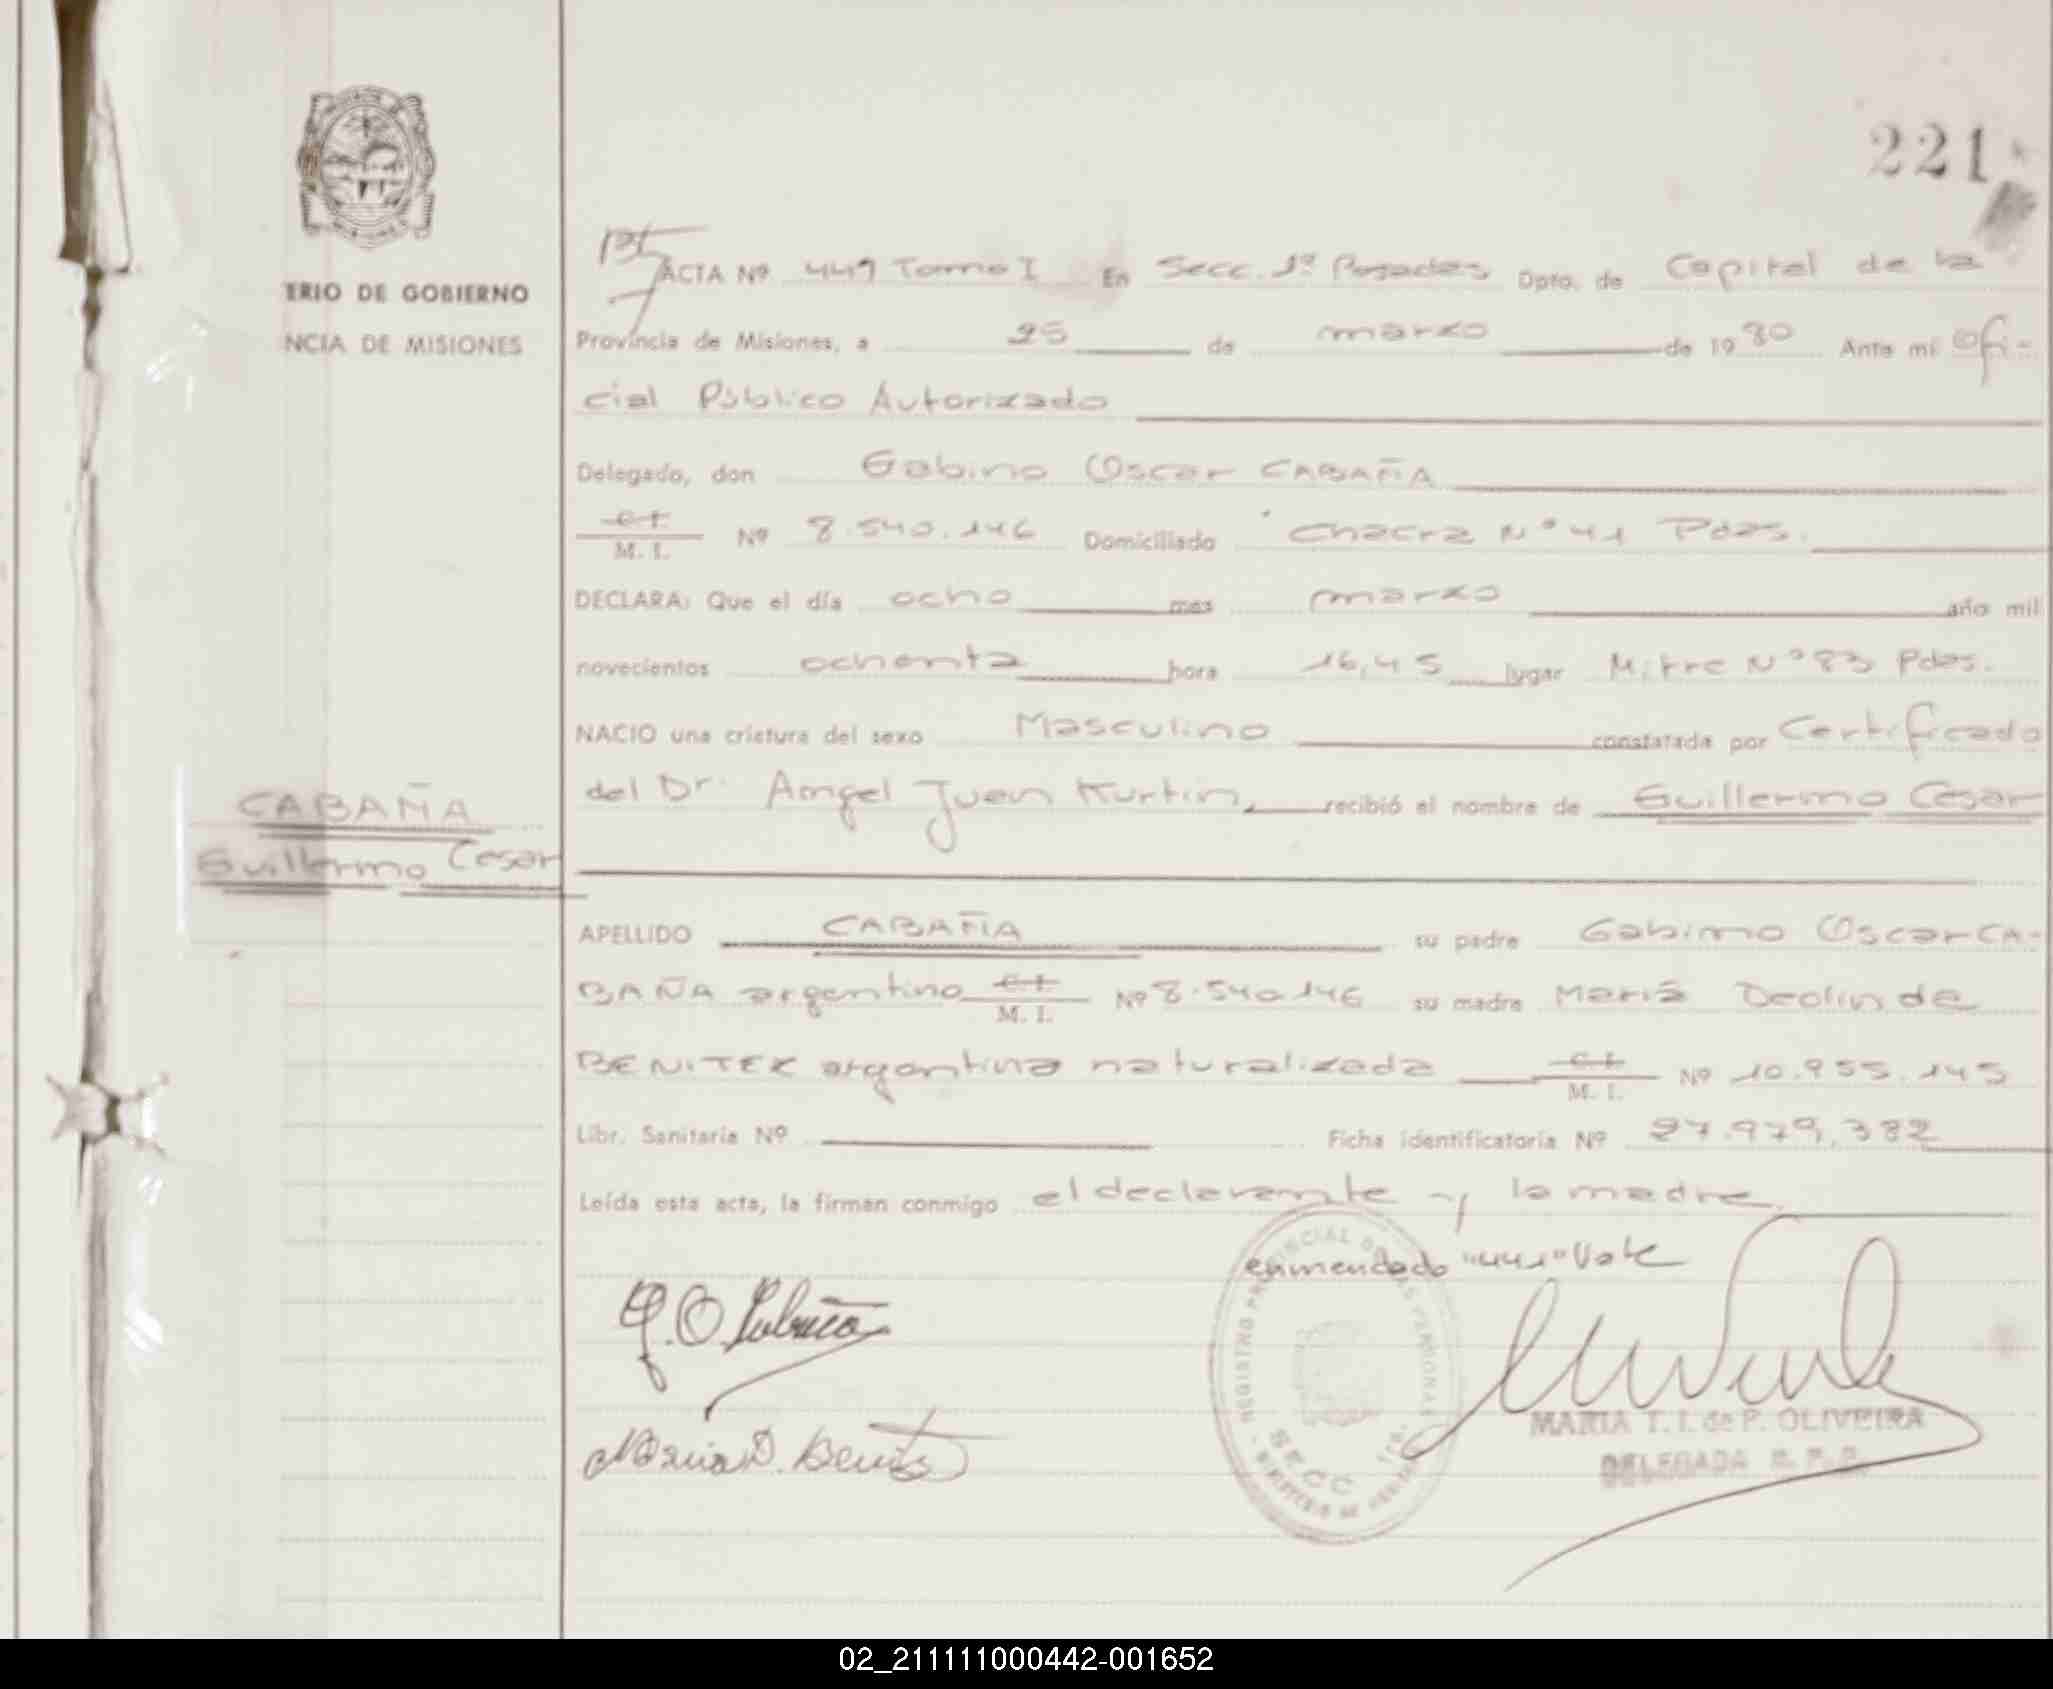 221
TERIO DE GOBIERNO
NCIA DE MISIONES
ACTA Nº 449 Tomo I En Secc. 1ª Posadas Dpto. de Capital de la
Provincia de Misiones, a 25 de marzo de 1980 Ante mi Ofi-
cial Público Autorizado
Delegado, don Gabino Oscar CABAÑA
C.I. M. I. Nº 8.540.146 Domiciliado Chacra Nº 41 Pdas.
DECLARA: Que el día ocho mes marzo año mil
novecientos ochenta hora 16,45 lugar Mitre Nº 83 Pdas.
NACIO una criatura del sexo Masculino constatada por Certificado
del Dr. Angel Juan Kurtin, recibió el nombre de Guillermo Cesar
CABAÑA
Guillermo Cesar
APELLIDO CABAÑA su padre Gabino Oscar CA-
BAÑA argentino C.I. M. I. Nº 8.540.146 su madre María Deolinda
BENITEZ argentina naturalizada C.I. M. I. Nº 10.955.145
Libr. Sanitaria Nº Ficha identificatoria Nº 27.979.382
Leída esta acta, la firman conmigo el declarante y la madre.
enmendado "441" Vale
G. O. Cabaña
Maria D. Benitez
REGISTRO PROVINCIAL DE LAS PERSONAS
SECC 1ra.
MARIA T. I. de P. OLIVEIRA
DELEGADA R. P. P.
02_211111000442-001652